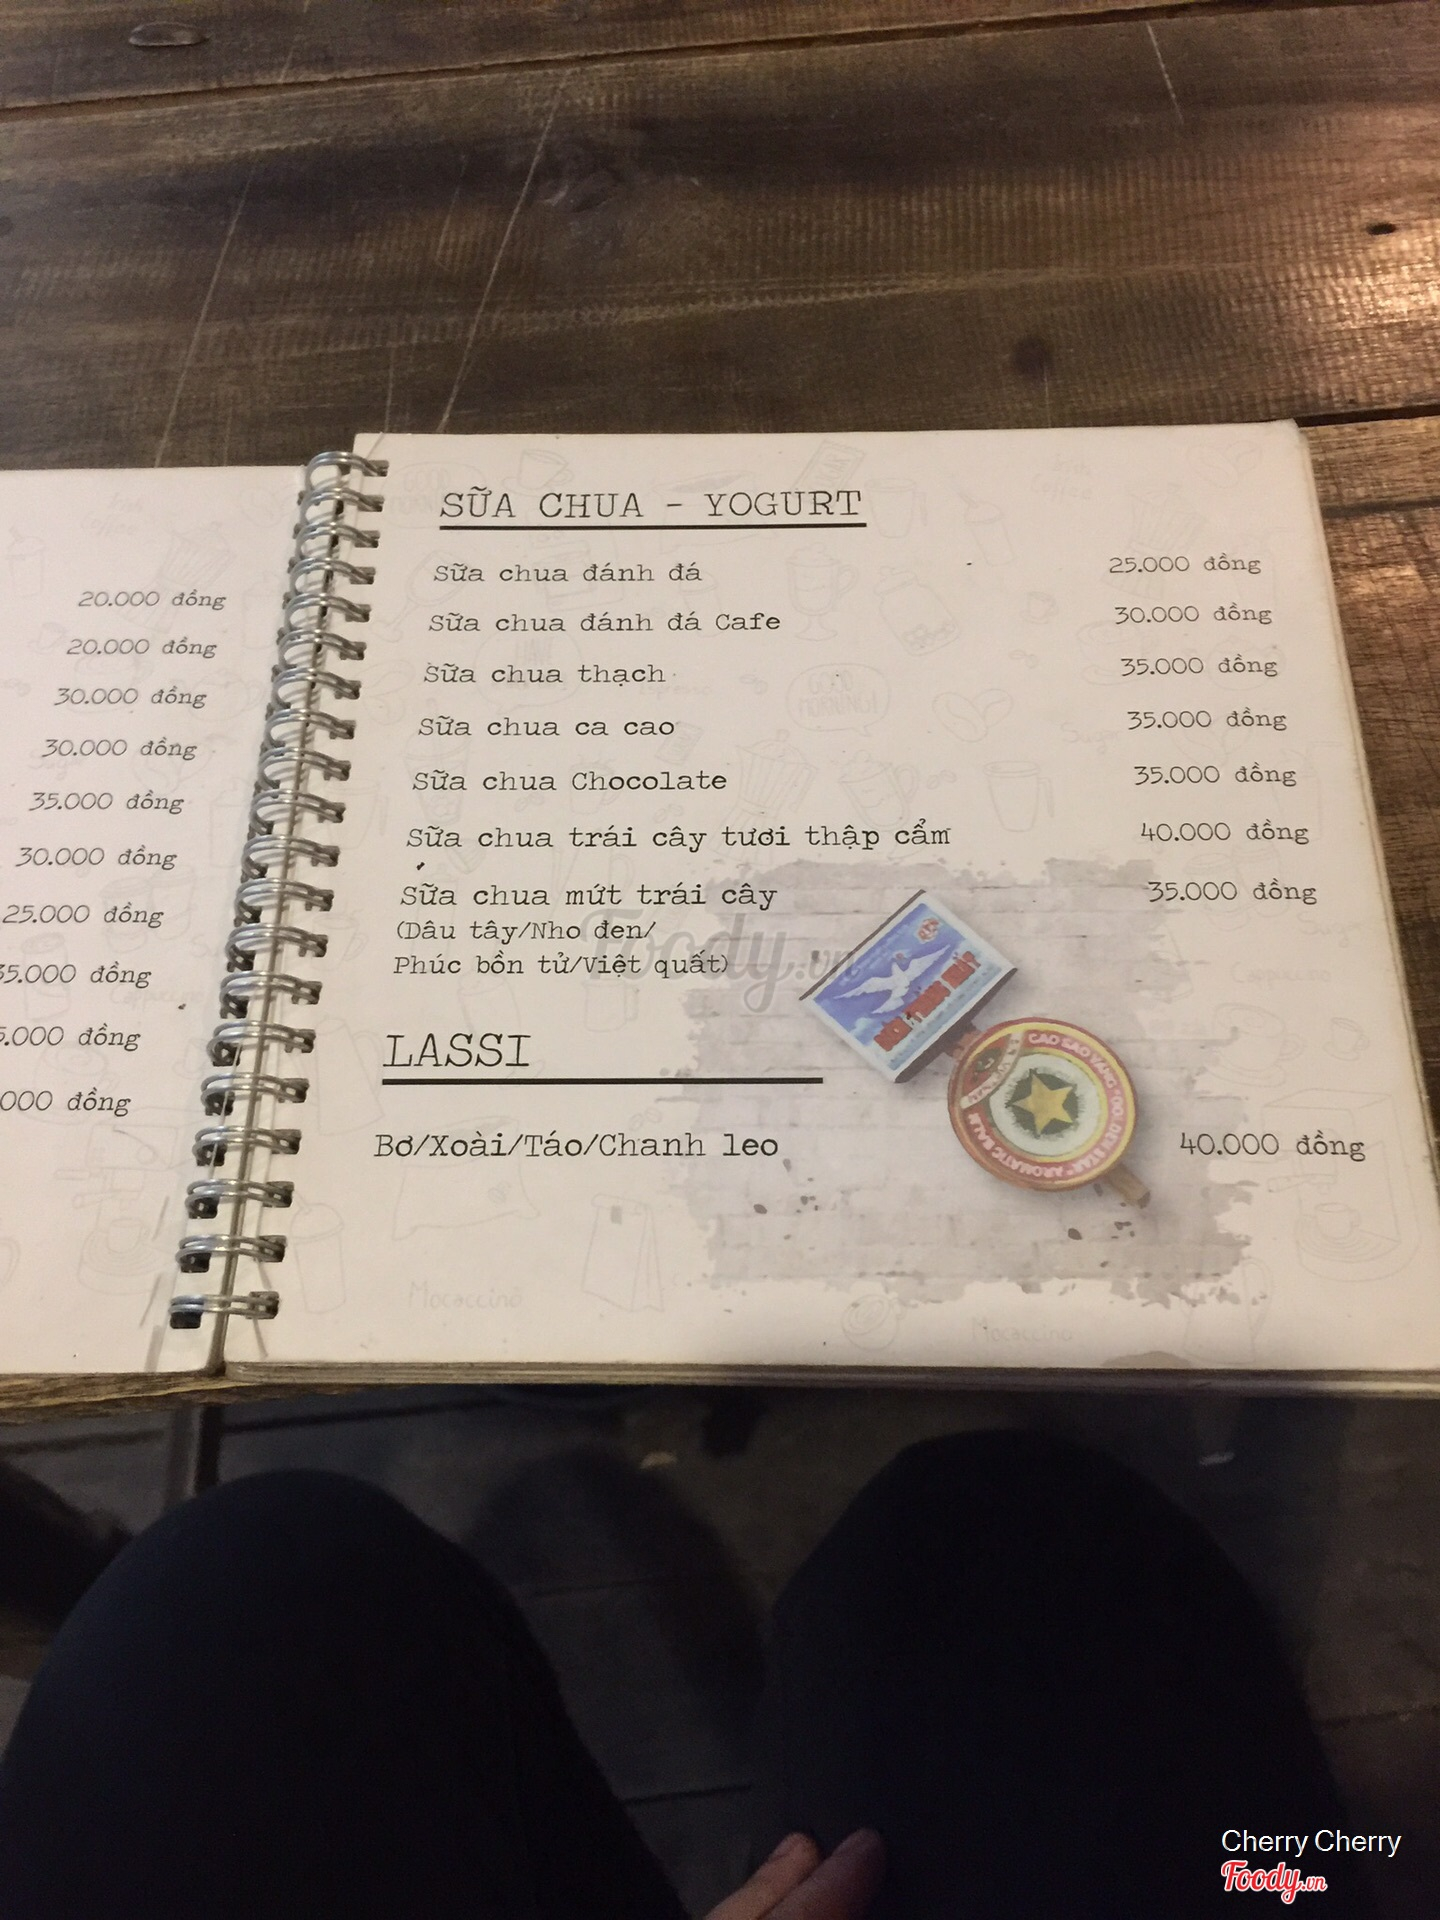 20.000 đồng
20.000 đồng
30.000 đồng
30.000 đồng
35.000 đồng
30.000 đồng
25.000 đồng
35.000 đồng
.000 đồng
000 đồng
SỮA CHUA - YOGURT
Sữa chua đánh đá 25.000 đồng
Sữa chua đánh đá Cafe 30.000 đồng
Sữa chua thạch 35.000 đồng
Sữa chua ca cao 35.000 đồng
Sữa chua Chocolate 35.000 đồng
Sữa chua trái cây tươi thập cẩm 40.000 đồng
Sữa chua mứt trái cây 35.000 đồng
(Dâu tây/Nho đen/
Phúc bồn tử/Việt quất)
Foody.vn
THỐNG NHẤT
CAO SAO VÀNG
GOLDEN STAR AROMATIC BALM
LASSI
Bơ/Xoài/Táo/Chanh leo 40.000 đồng
Mocaccino
Mocaccino
Cherry Cherry
Foody.vn